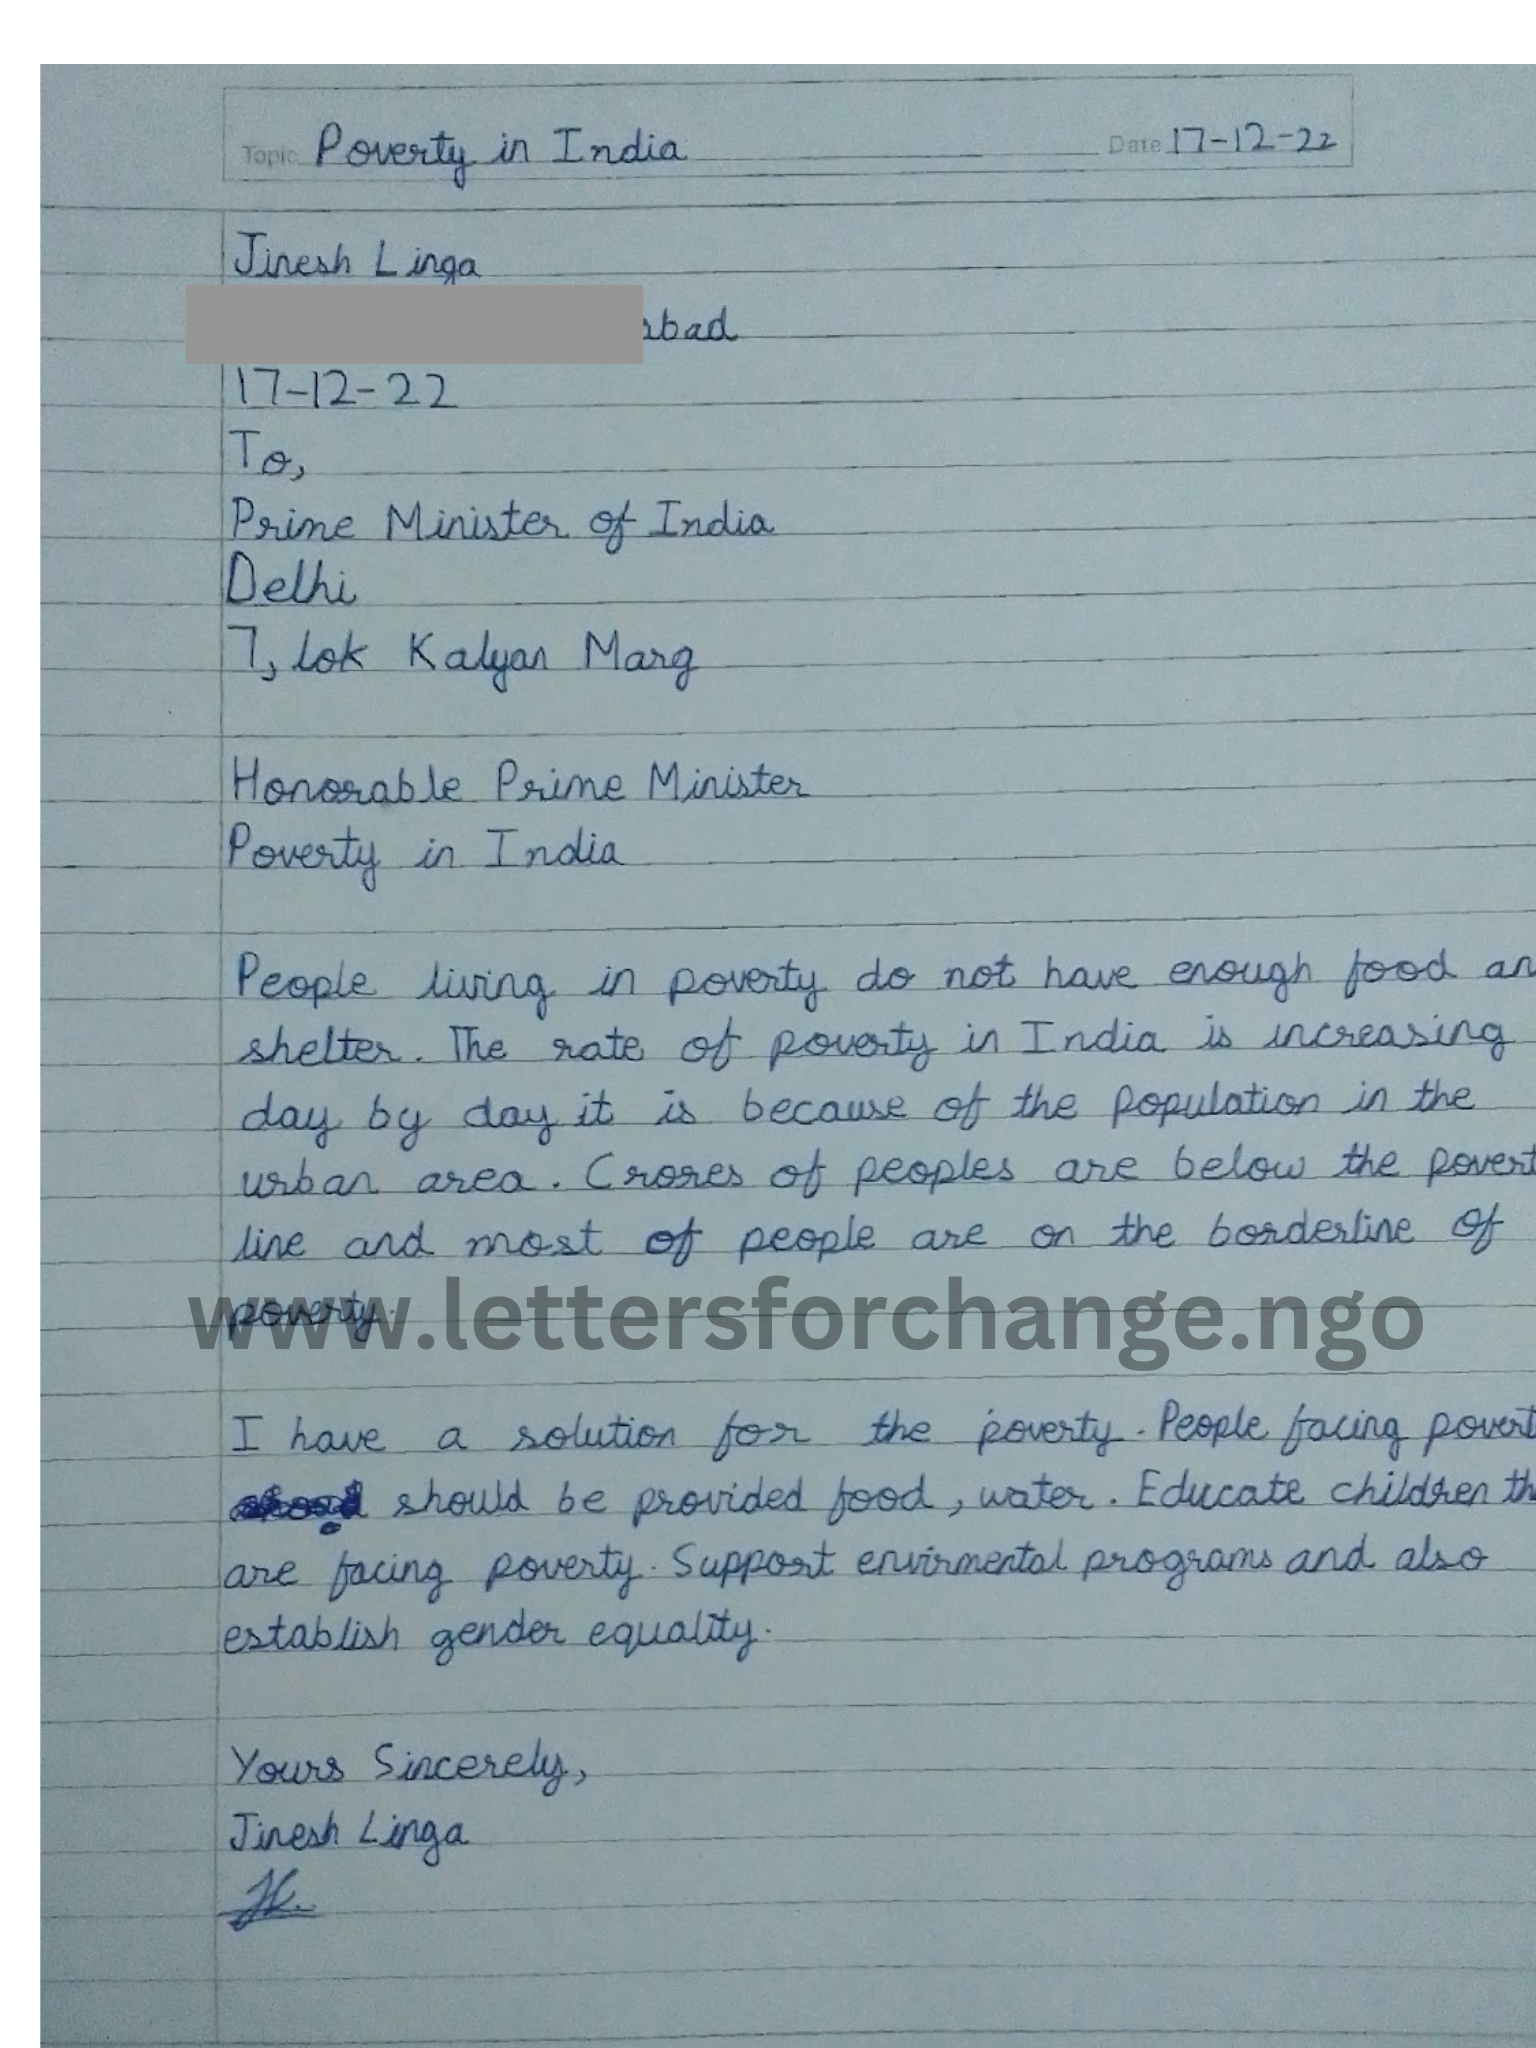 Topic Poverty in India Date 17-12-22
Jinesh Linga
abad
17-12-22
To,
Prime Minister of India
Delhi
7, lok Kalyan Marg
Honorable Prime Minister
Poverty in India
People living in poverty do not have enough food an
shelter. The rate of poverty in India is increasing
day by day it is because of the population in the
urban area. Crores of peoples are below the povert
line and most of people are on the borderline of
poverty.
www.lettersforchange.ngo
I have a solution for the poverty. People facing povert
should be provided food, water. Educate children th
are facing poverty. Support envirmental programs and also
establish gender equality.
Yours Sincerely,
Jinesh Linga